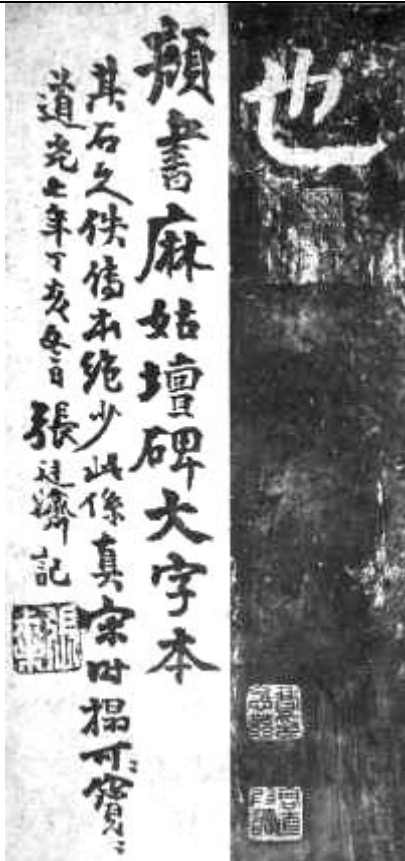 也
顏書麻姑壇碑大字本
其石久佚傳本絶少此係真宋时搨可〻寶〻
道光七年丁亥 張廷濟記